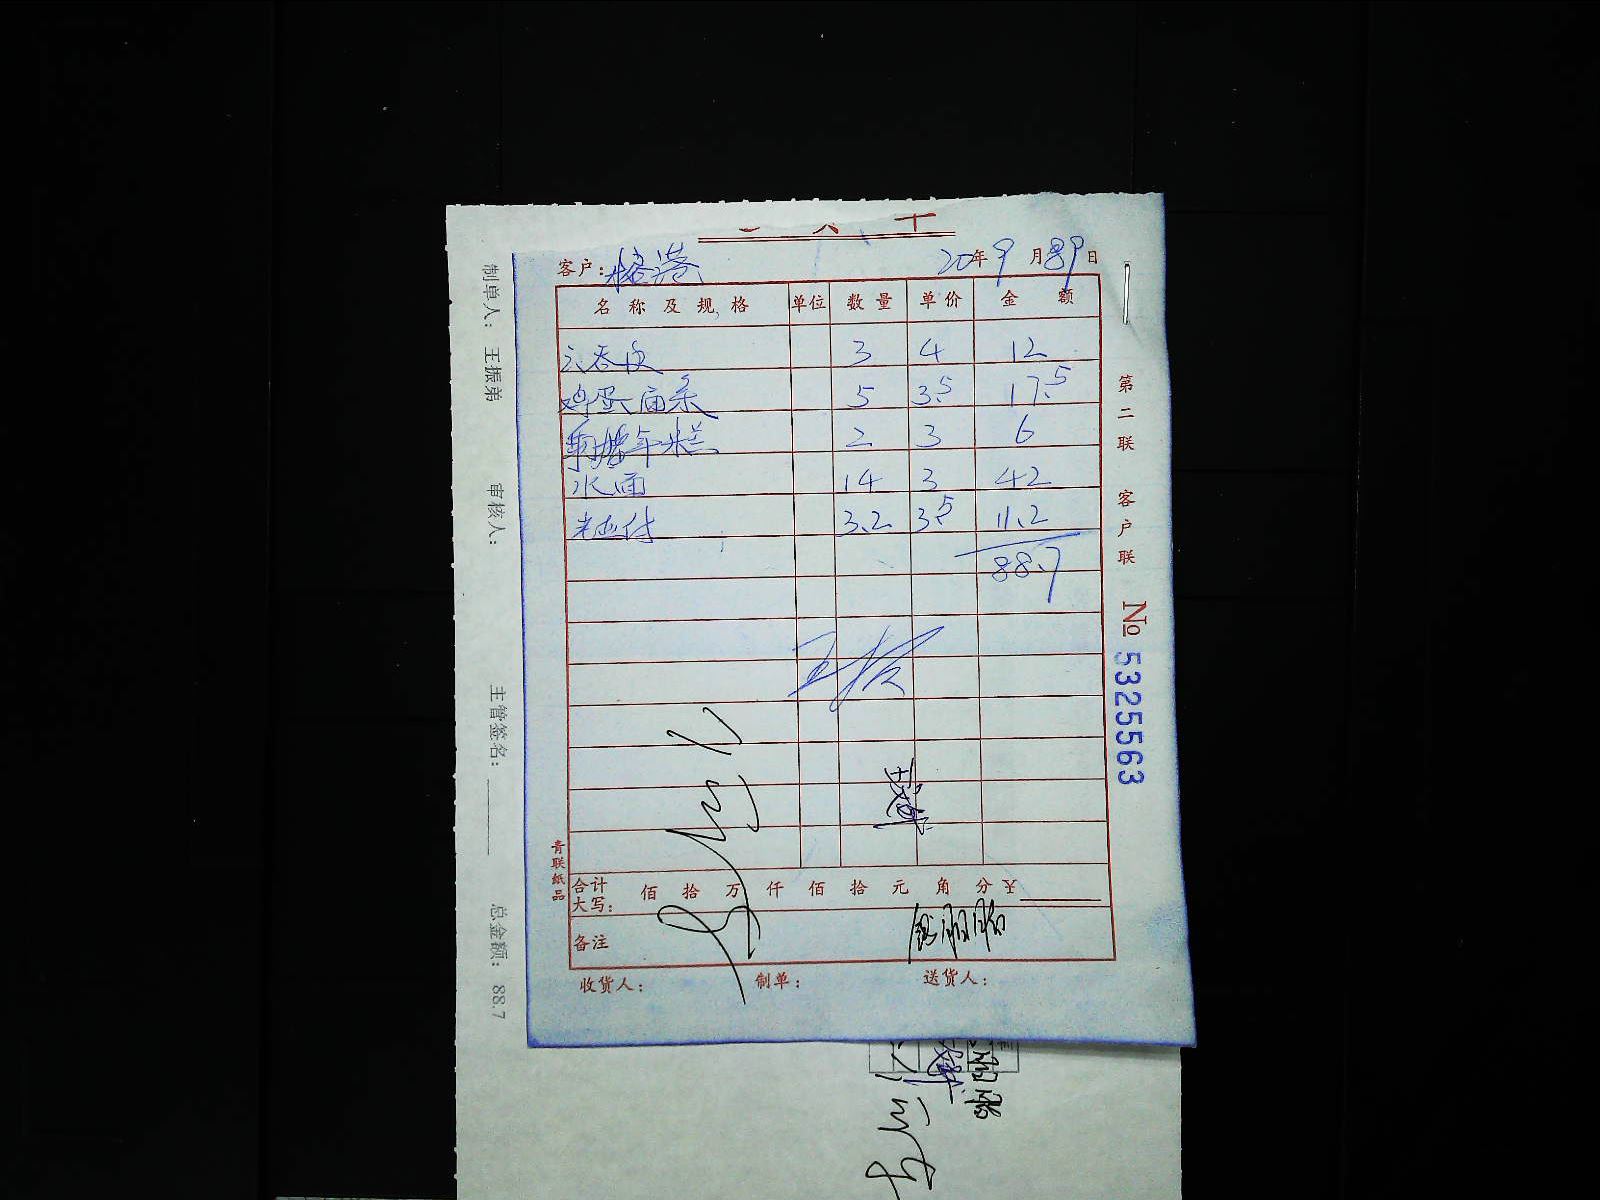 客户：榕港 20年9月89日
名称及规格 单位 数量 单价 金额
3 4 12
鸡蛋面条 5 3.5 17.5
年糕 2 3 6
水面 14 3 42
3.2 3.5 11.2
88.7
王振
合计大写： 佰 拾 万 仟 佰 拾 元 角 分 ¥
备注
收货人： 制单： 送货人：
青联纸品
第二联 客户联 № 5325563
制单人： 王振弟 审核人： 主管签名： 总金额： 88.7